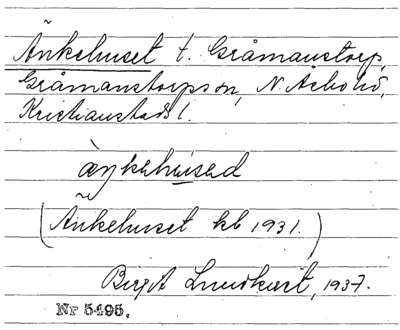 Änkehuset t. Gråmanstorp,
Gråmanstorps sn, N. Åsbo hd,
Kristianstads l.
äŋkəhu̱səd
(Änkehuset kb 1931.)
Birgit Lundkvist, 1937.
Nr 5495.